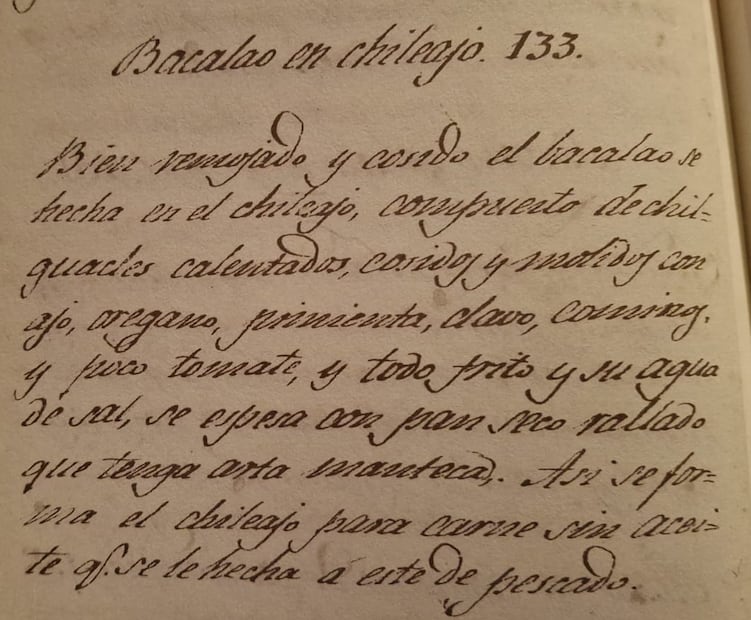 Bacalao en chileajo. 133.
Bien remojado y cosido el bacalao se
hecha en el chileajo, compuesto de chil=
guacles calentados, cosidos y molidos con
ajo, oregano, pimienta, clavo, comino,
y poco tomate, y todo frito y su agua
de sal, se espesa con pan seco rallado
que tenga arta manteca. Asi se for=
ma el chileajo para carne sin acei=
te q.e se le hecha á este de pescado.